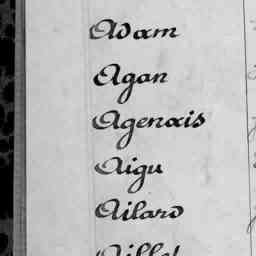 Adam
Agan
Agenais
Aigu
Ailard